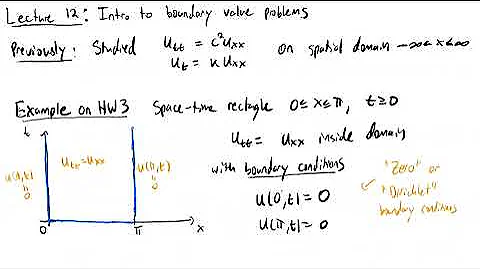 Lecture 12: Intro to boundary value problems
Previously: Studied u_tt = c²u_xx on spatial domain -∞<x<∞
u_t = κ u_xx
Example on HW3 Space-time rectangle 0 ≤ x ≤ π, t ≥ 0
u_tt = u_xx inside domain
with boundary conditions
u(0,t) = 0
u(π,t) = 0
"Zero" or
✓ "Dirichlet"
boundary conditions
t
u(0,t)
=
0
u_tt = u_xx
u(π,t)
=
0
0 π x